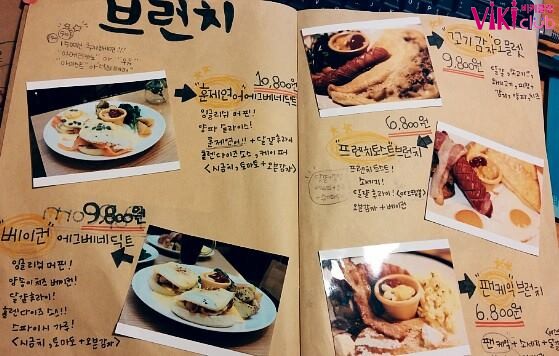 브런치
10,800원
"훈제연어"에그베네딕트
잉글리쉬 머핀!
양파 슬라이스!
훈제연어!! + 달걀후라이
홀란다이즈 소스, 케이퍼
<시금치, 토마토 + 오븐감자>
9,800원
"베이컨"에그베네딕트
잉글리쉬 머핀!
양송이 치즈 베이컨!
달걀후라이!
홀란다이즈 소스!!
스파이시 가루!
<시금치, 토마토 + 오븐감자>
"고기감자"오믈렛
9,800원
달걀, 소시지,
감자, 양파, 치즈
6,800원
"프렌치토스트"브런치
프렌치토스트!
소세지!
달걀후라이!
오븐감자 + 베이컨
"팬케익"브런치
6,800원
팬케익 + 소세지 +